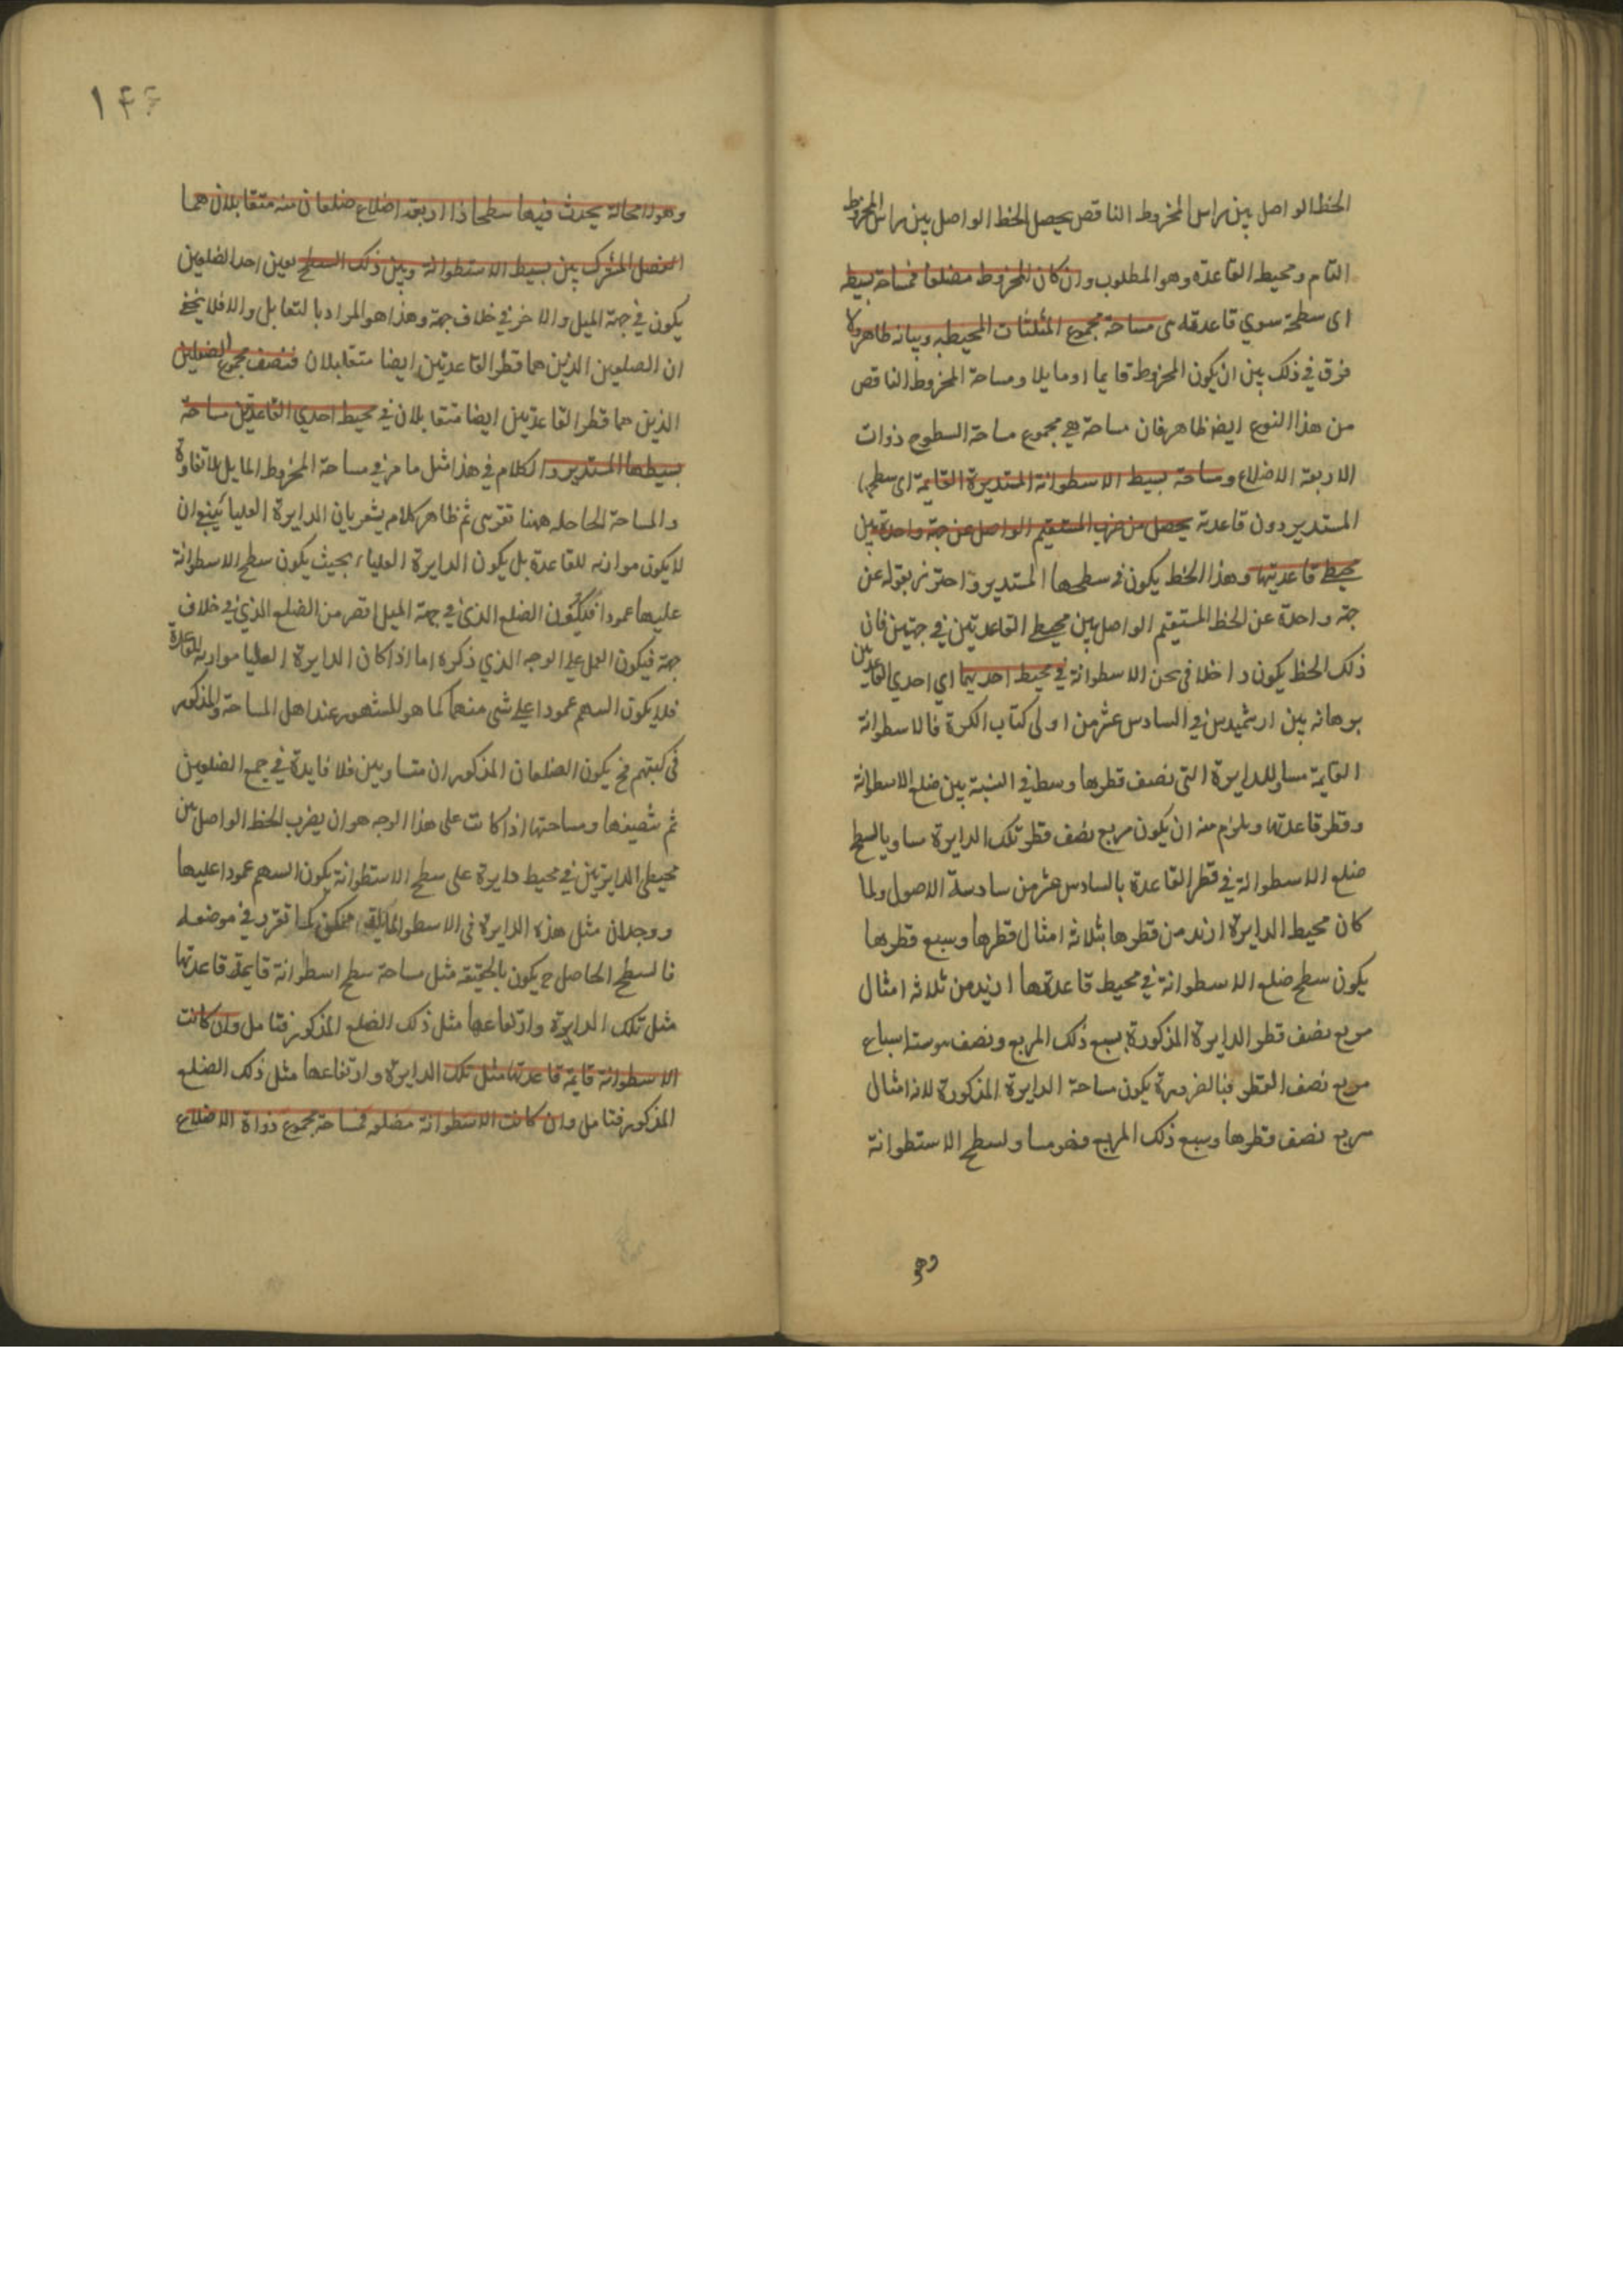 الخط الواصل بين راس المخروط الناقص يحصل الخط الواصل بين راس المخروط
التام ومحيط القاعدة وهو المطلوب وان كان المخروط مضلعا فمساحة بسيطه
اى سطحه سوي قاعدته هى مساحة مجموع المثلثات المحيطه وبيانه ظاهر ولا
فرق في ذلك بين ان يكون المخروط قايما او مايلا ومساحة المخروط الناقص
من هذا النوع ايضا ظاهر فان مساحة هي مجموع مساحة السطوح ذوات
الاربعة الاضلاع ومساحة بسيط الاسطوانة المستديرة القايمة اى سطحها
المستدير دون قاعدته يحصل من ضرب المستقيم الواصل عن جهة واحدة بين
محيط قاعدتيها وهذا الخط يكون في سطحها المستدير واحترز بقوله عن
جهة واحدة عن الخط المستقيم الواصل بين محيط القاعدتين في جهتين فان
ذلك الخط يكون داخلا في ثخن الاسطوانة في محيط احديهما اي احدي القاعدتين
برهانه بين ارشميدس في السادس عشر من اولى كتاب الكرة فالاسطوانة
القايمة مساو للدايرة التى نصف قطرها وسط في النسبة بين ضلع الاسطوانة
وقطر قاعدتها ويلزم منه ان يكون مربع نصف قطر تلك الدايرة مساويا لسطح
ضلع الاسطوانة في قطر القاعدة بالسادس عشر من سادسة الاصول ولما
كان محيط الدايرة ازيد من قطرها بثلاثة امثال قطرها وسبع قطرها
يكون سطح ضلع الاسطوانة في محيط قاعدتها ازيد من ثلاثة امثال
مربع نصف قطر الدايرة المذكورة بسبع ذلك المربع ونصف وستة اسباع
مربع نصف القطر فبالضرورة يكون مساحة الدايرة المذكورة ثلاثة امثال
مربع نصف قطرها وسبع ذلك المربع فهو مساو لسطح الاستطوانة
وهو
وهو لا محالة يحدث فيها سطحا ذا اربعة اضلاع ضلعان منه متقابلان هما
الفصل المشترك بين بسيط الاستطوانة وبين ذلك السطح يعين احد الضلعين
يكون في جهة الميل والاخر في خلاف جهة وهذا هو المراد بالتقابل والا فلا يخفى
ان الضلعين الذين هما قطر القاعدتين ايضا متقابلان فنصف مجموع الضلعين
الذين هما قطر القاعدتين ايضا متقابلان في محيط احدي القاعدتين مساحة
بسيطها المستدير والكلام في هذا مثل ما مر في مساحة المخروط المايل بلا تفاوت
والمساحة الحاصله ههنا تقريبى ثم ظاهر كلامه يشعر بان الدايرة العليا ينبغي ان
لا يكون موازيه للقاعدة بل يكون الدايرة العلياء بحيث يكون سطح الاسطوانة
عليها عمودا فيكون الضلع الذي في جهة الميل اقصر من الضلع الذي في خلاف
جهة فيكون العمل على الوجه الذي ذكره اما اذا كان الدايرة العليا موازية للقاعدة
فلا يكون السهم عمودا على شى منهما كما هو المشهور عند اهل المساحة والمذكور
في كتبهم فح يكون الضلعان المذكوران متساويين فلا فايدة في جمع الضلعين
ثم تنصيفها ومساحتها اذا كانت على هذا الوجه هو ان يضرب الخط الواصل بين
محيطى الدايرتين في محيط دايرة على سطح الاستطوانة يكون السهم عمودا عليها
ووجدان مثل هذه الدايرة فى الاسطوانة المايلة ممكن كما تقرر في موضعه
فالسطح الحاصل ح يكون بالحقيقه مثل مساحة سطح اسطوانة قايمة قاعدتها
مثل تلك الدايرة وارتفاعها مثل ذلك الضلع المذكور فتامل وان كانت
الاسطوانة قايمة قاعدتها مثل تلك الدايرة وارتفاعها مثل ذلك الضلع
المذكور فتامل وان كانت الاسطوانة مضلعه فمساحة مجموع ذواة الاضلاع